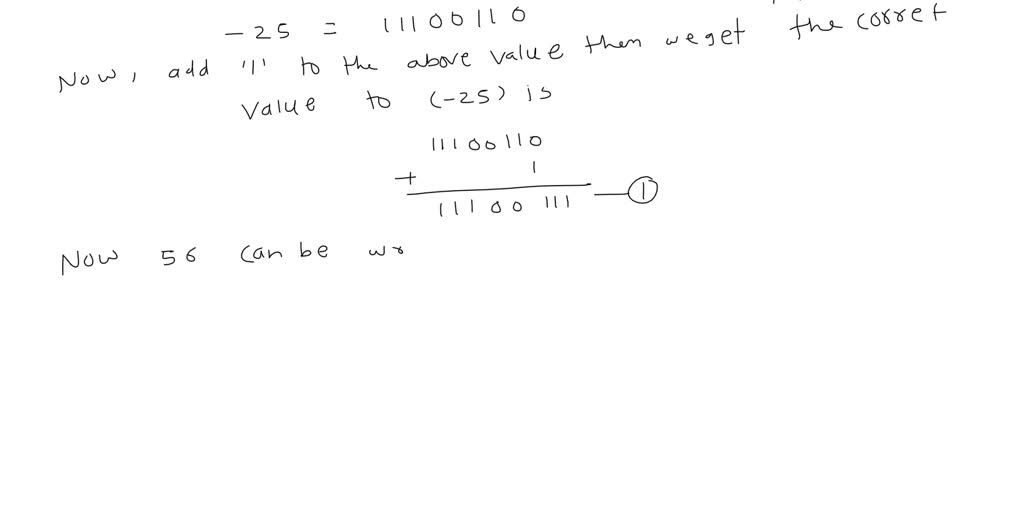 -25 = 11100110
Now, add '1' to the above value then we get the corret
value to (-25) is
11100110
+ 1
11100111 — ①
Now 56 can be wr